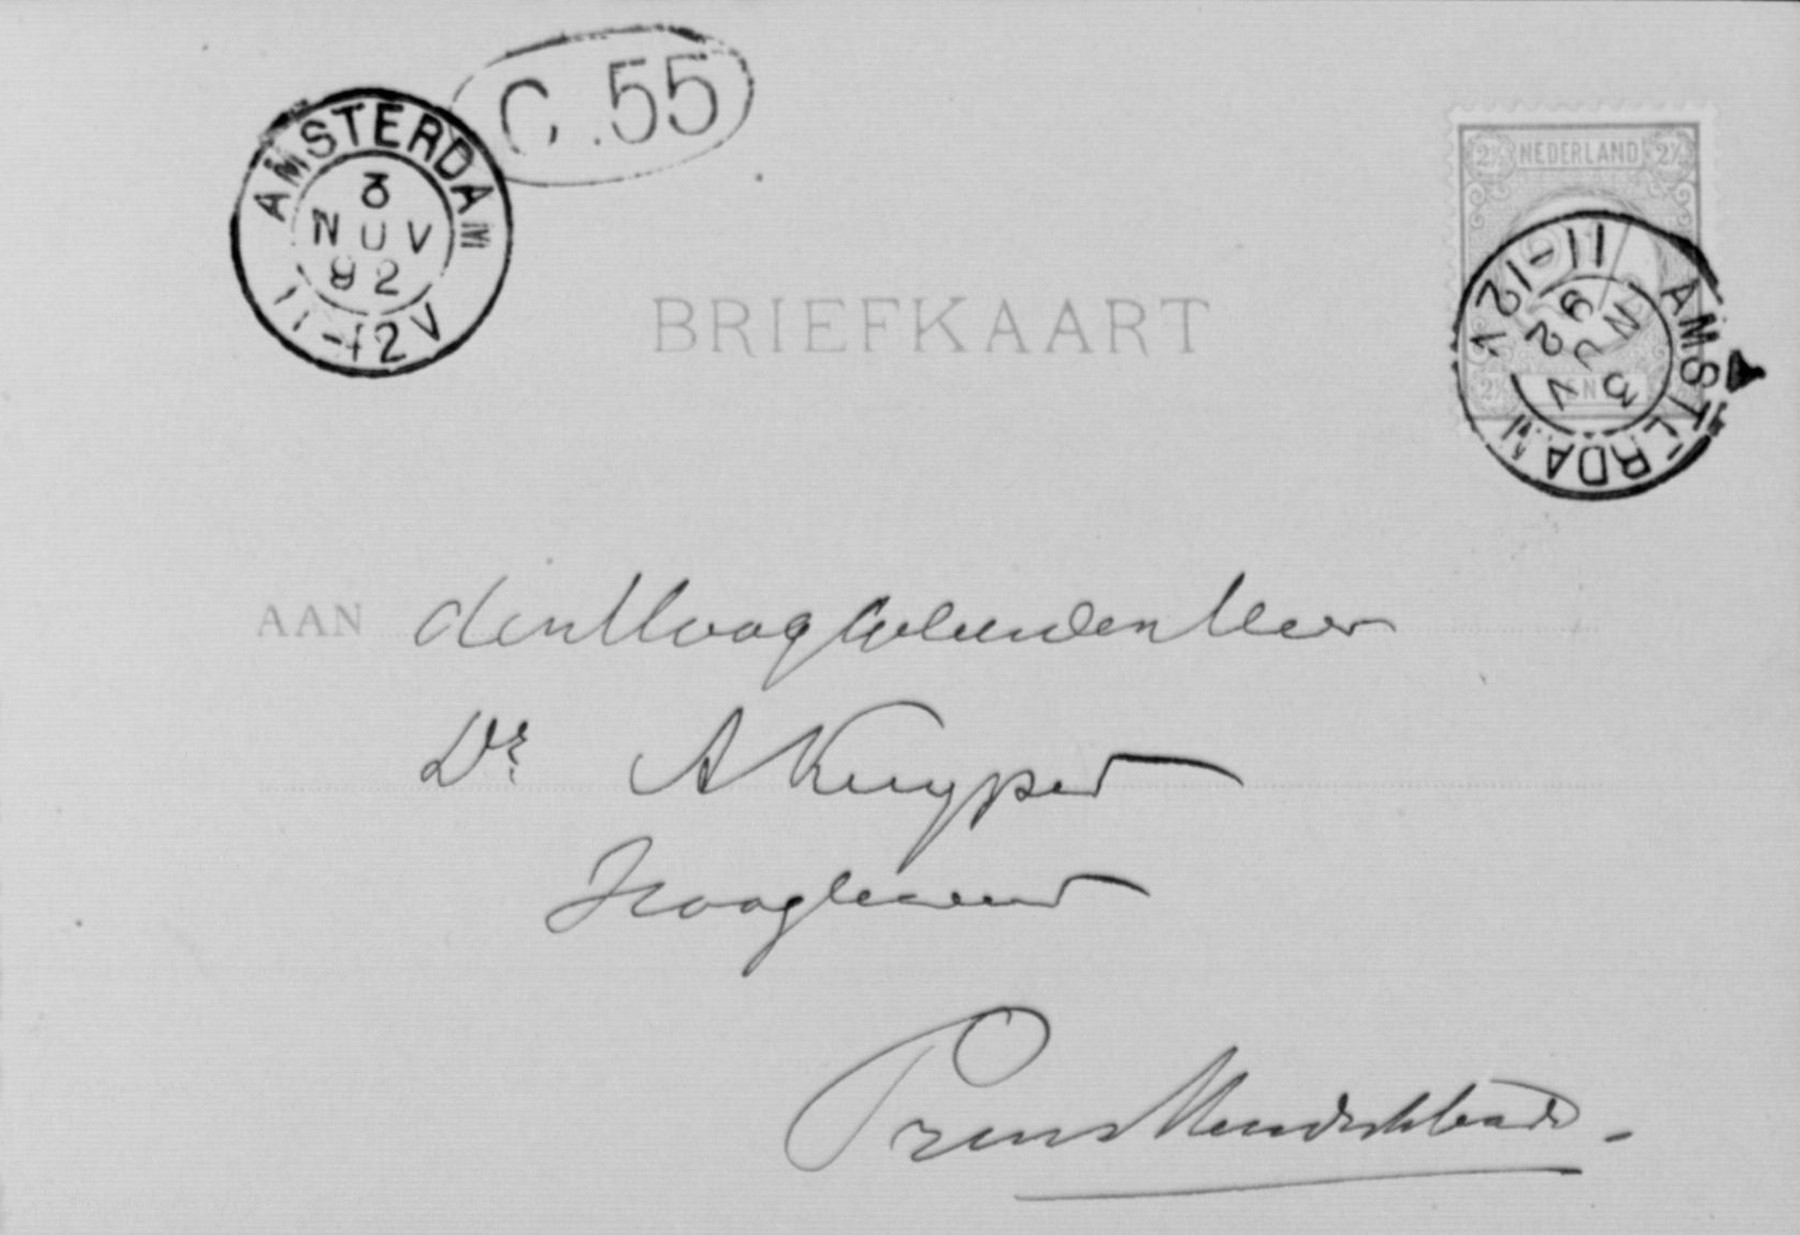 C. 55
AMSTERDAM
3
NOV
92
11-12V
2½ NEDERLAND 2½
AMSTERDAM
3 NOV 92
11-12V
2½
BRIEFKAART
AAN den Hoog Geleerden Heer
Dr. A Kuyper
Hoogleeraar
Prins Hendrikkade.